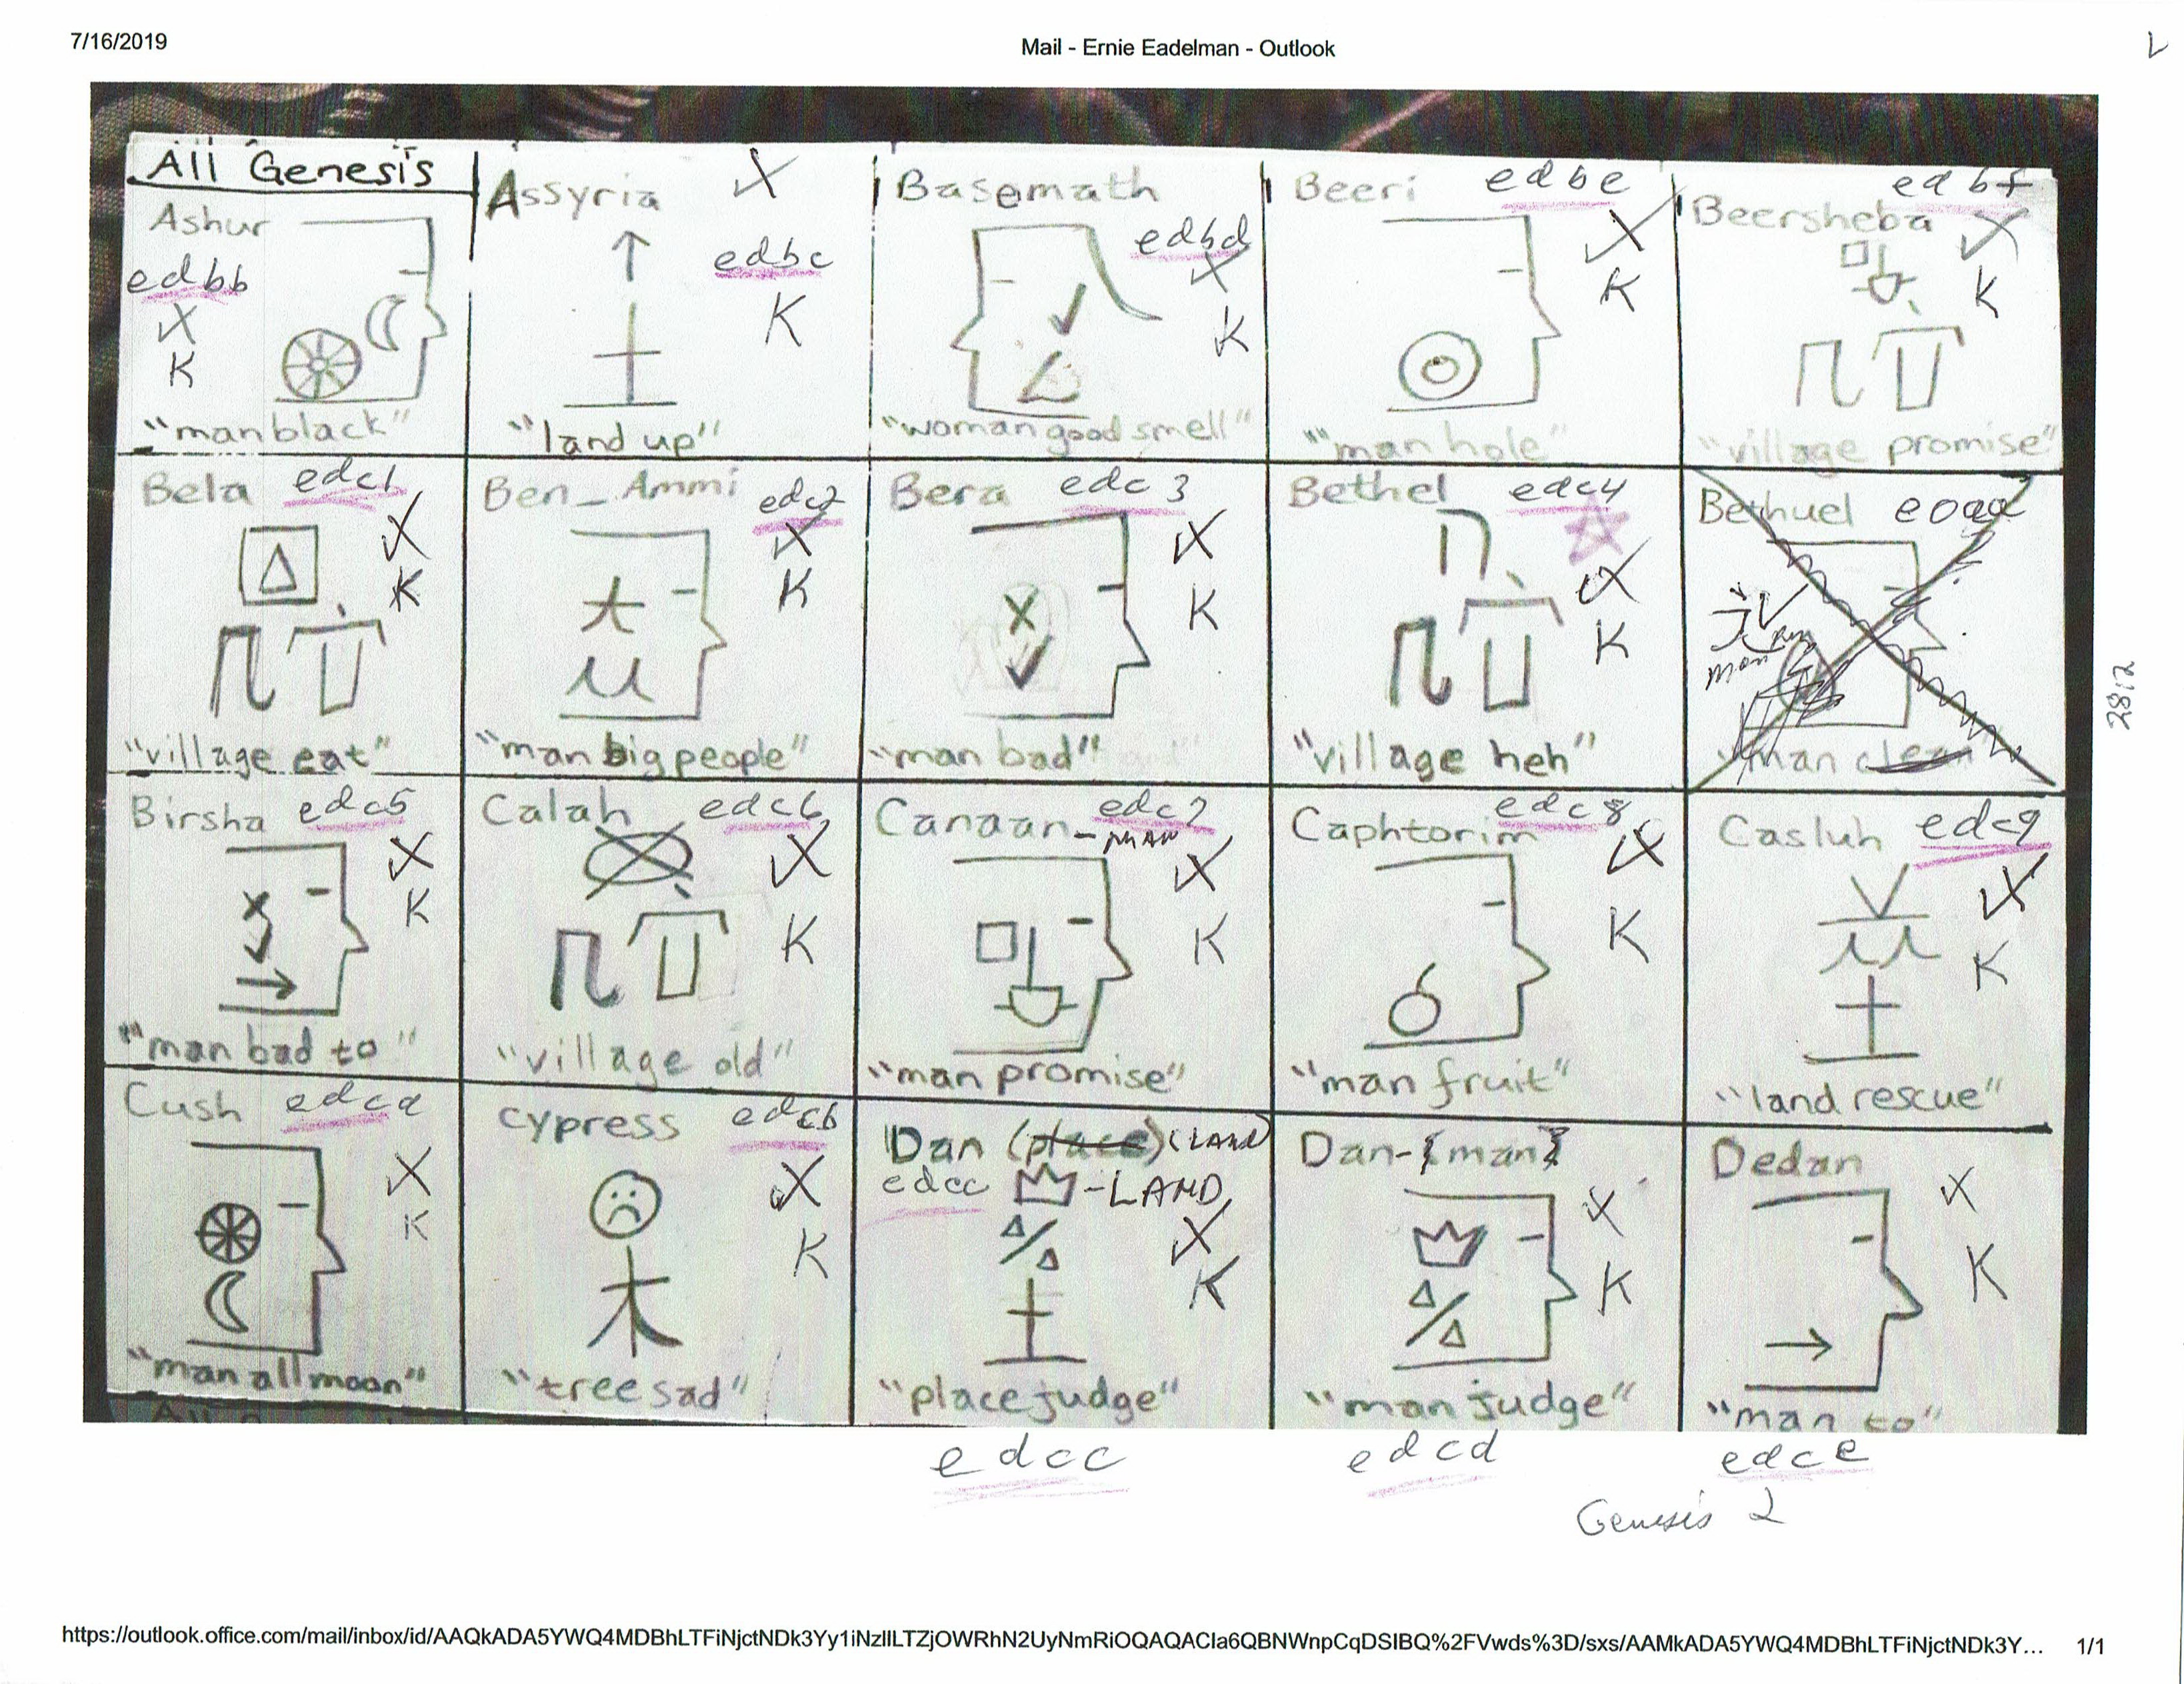 7/16/2019
Mail - Ernie Eadelman - Outlook
All Genesis
Ashur
edbb
K
"man black"
Assyria
edbc
K
"land up"
Basemath
edbd
K
"woman good smell"
Beeri edbe
K
"man hole"
edbf
Beersheba
K
"village promise"
Bela edc1
K
"village eat"
Ben-Ammi
edc2
K
"man big people"
Bera edc3
K
"man bad"
Bethel edc4
K
"village heh"
Bethuel
man
"man clean"
2812
Birsha edc5
K
"man bad to"
Calah edc6
K
"village old"
Canaan-MAN edc7
K
"man promise"
Caphtorim edc8
K
"man fruit"
Casluh edc9
K
"land rescue"
Cush edca
K
"man all moon"
cypress edcb
K
"tree sad"
Dan (place) (LAND)
edcc -LAND
K
"place judge"
edcc
Dan-{man}
K
"man judge"
edcd
Dedan
K
"man to"
edce
Genesis 2
https://outlook.office.com/mail/inbox/id/AAQkADA5YWQ4MDBhLTFiNjctNDk3Yy1iNzllLTZjOWRhN2UyNmRiOQAQACIa6QBNWnpCqDSIBQ%2FVwds%3D/sxs/AAMkADA5YWQ4MDBhLTFiNjctNDk3Y… 1/1